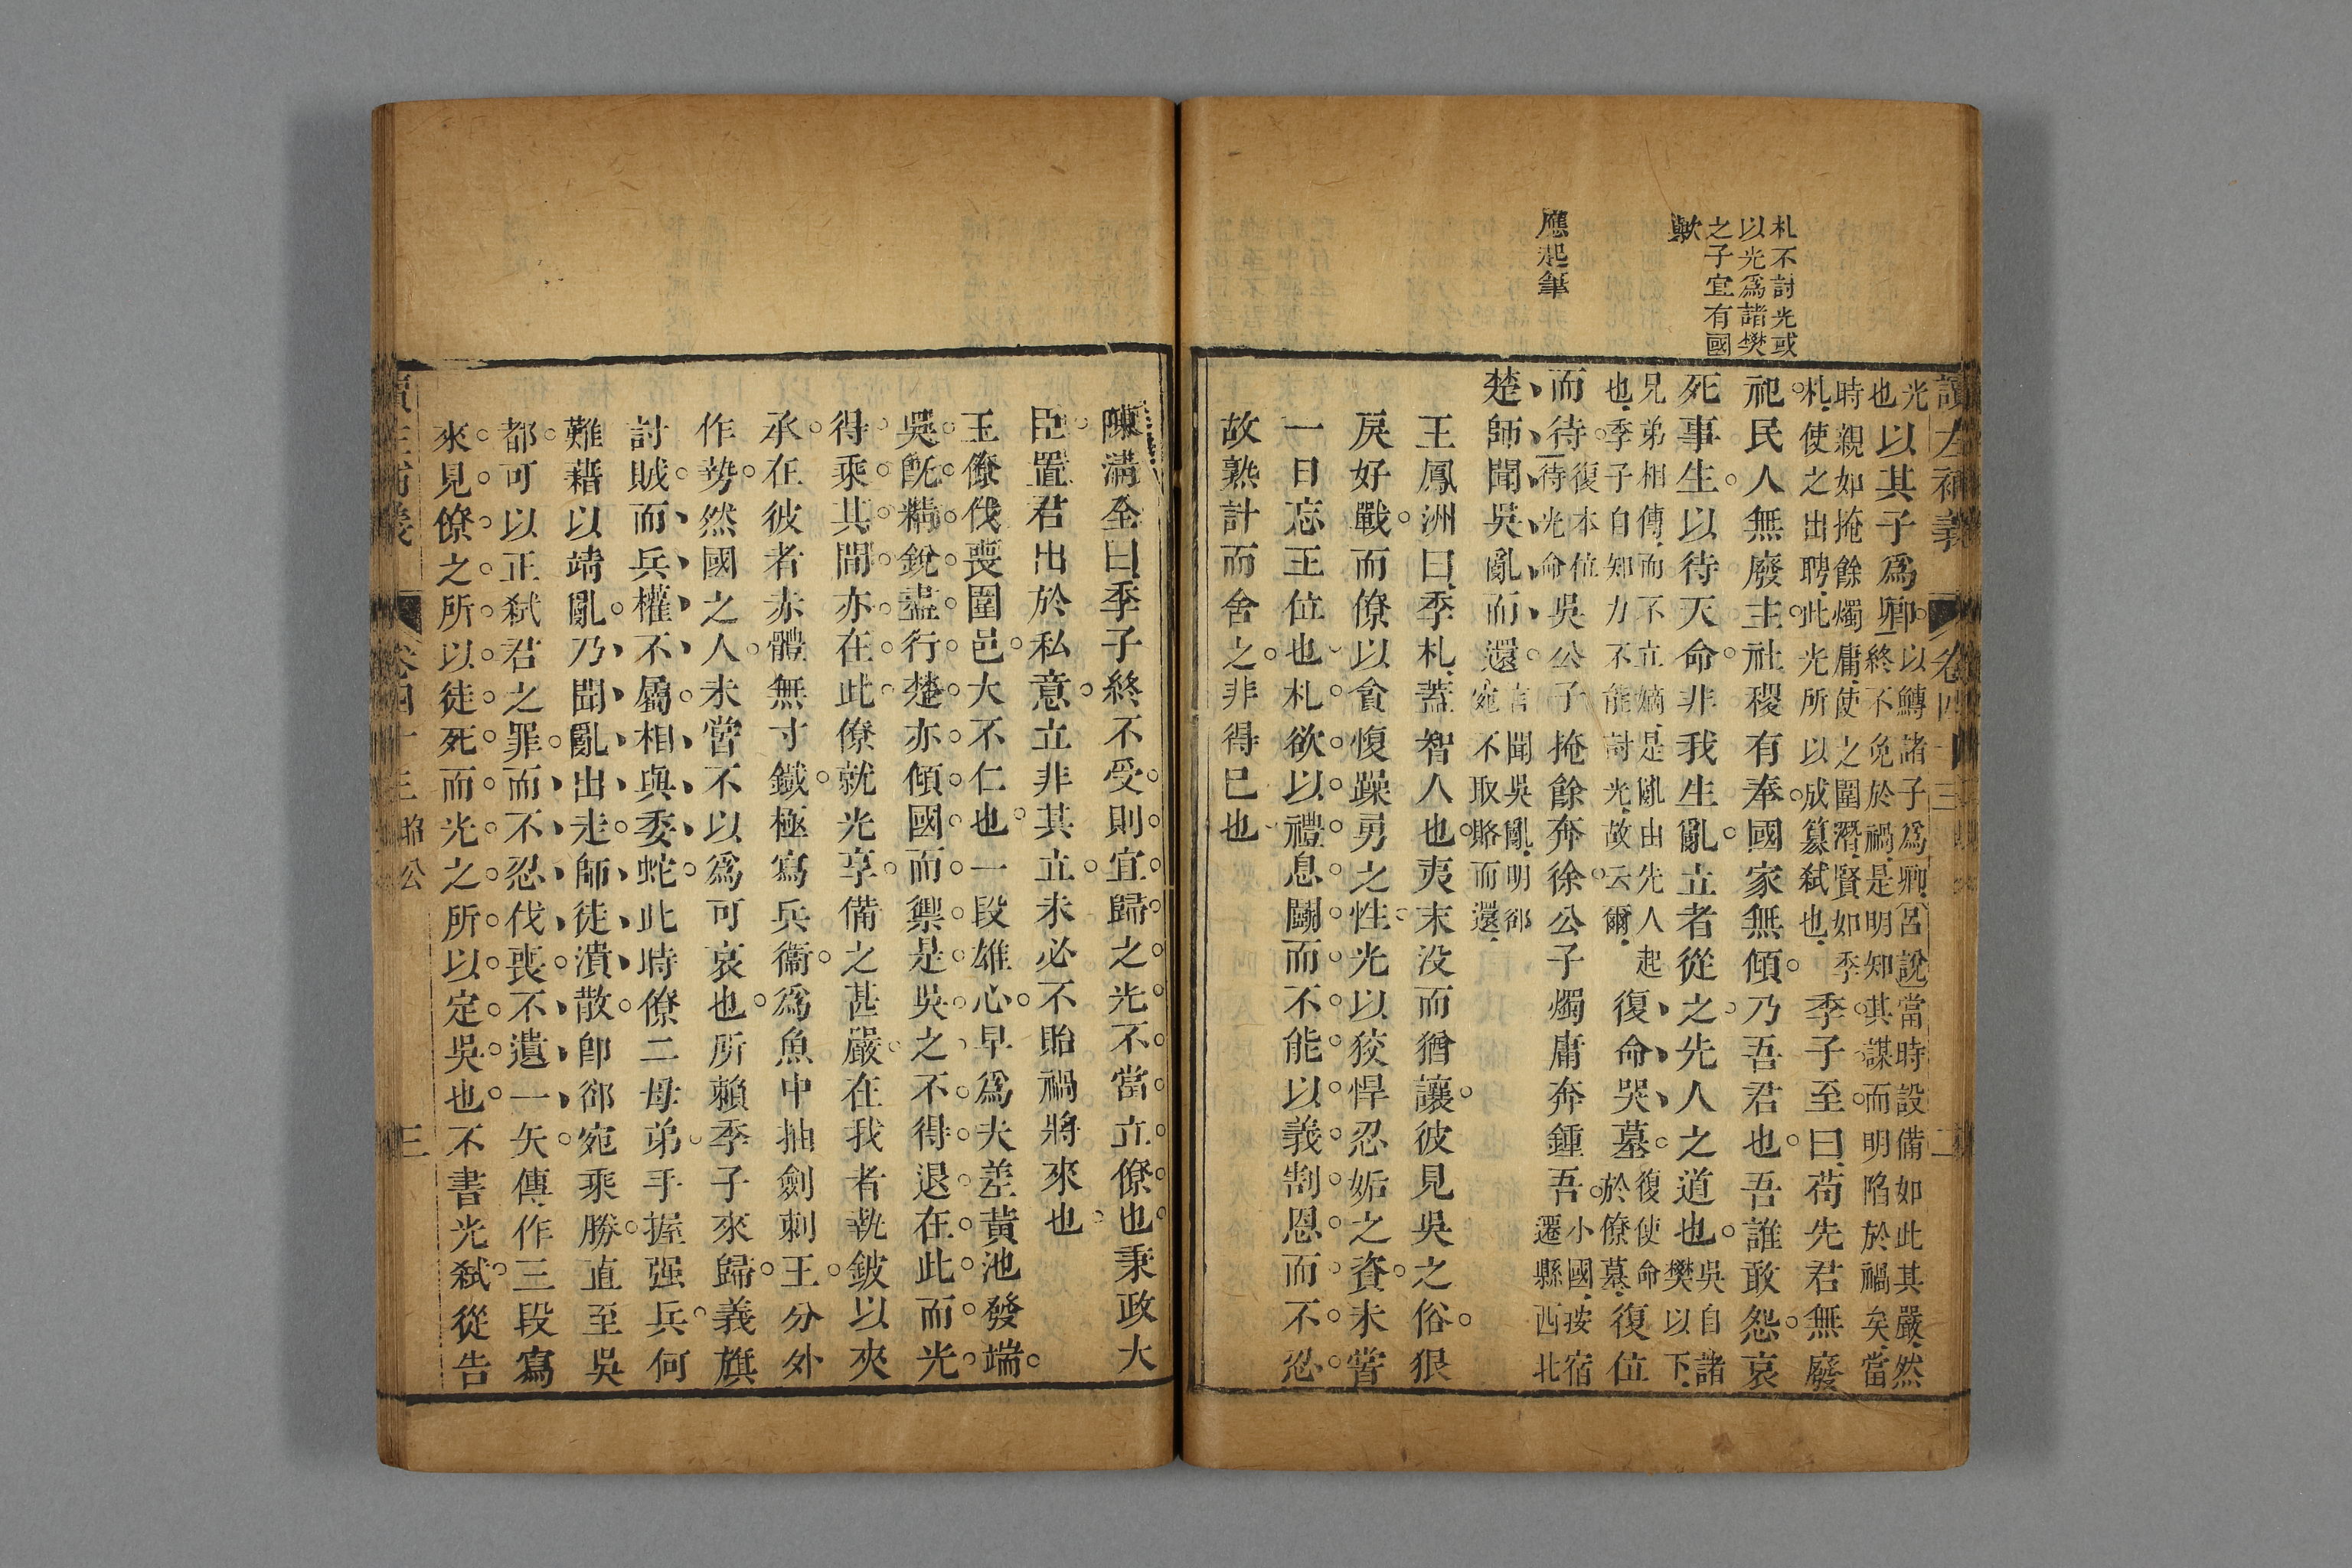 札不討光或
以光爲諸樊
之子宜有國
歟
應起筆
讀左補義 卷四十三 二
光
也
以其子爲卿
以鱄諸子爲卿呂說當時設備如此其嚴然
終不免於禍是明知其謀而明陷於禍矣當
時親如掩餘燭庸使之圍潛賢如季
札使之出聘此光所以成篡弑也
季子至曰苟先君無廢
祀民人無廢主社稷有奉國家無傾乃吾君也吾誰敢怨哀
死事生以待天命非我生亂立者從之先人之道也
吳自諸
樊以下
兄弟相傳而不立嫡是亂由先人起
也季子自知力不能討光故云爾
復命哭墓
復使命
於僚墓
復位
而待
復本位
待光命
吳公子掩餘奔徐公子燭庸奔鍾吾
小國按宿
遷縣西北
楚師聞吳亂而還
言聞吳亂明郤
宛不取賂而還
王鳳洲曰季札蓋智人也夷末没而猶讓彼見吳之俗狠
戾好戰而僚以貪愎躁勇之性光以狡悍忍妬之資未嘗
一日忘王位也札欲以禮息鬭而不能以義割恩而不忍
故熟計而舍之非得已也
陳溝全曰季子終不受則宜歸之光不當立僚也秉政大
臣置君出於私意立非其立未必不貽禍將來也
王僚伐喪圍邑大不仁也一段雄心早爲夫差黃池發端
吳旣精銳盡行楚亦傾國而禦是吳之不得退在此而光
得乘其間亦在此僚就光享備之甚嚴在我者執鈹以夾
承在彼者赤體無寸鐵極寫兵衞爲魚中抽劍刺王分外
作勢然國之人未嘗不以爲可哀也所賴季子來歸義旗
討賊而兵權不屬相與委蛇此時僚二母弟手握强兵何
難藉以靖亂乃聞亂出走師徒潰散卽郤宛乘勝直至吳
都可以正弑君之罪而不忍伐喪不遺一矢傳作三段寫
來見僚之所以徒死而光之所以定吳也不書光弑從告
讀左補義 卷四十三 昭公 三